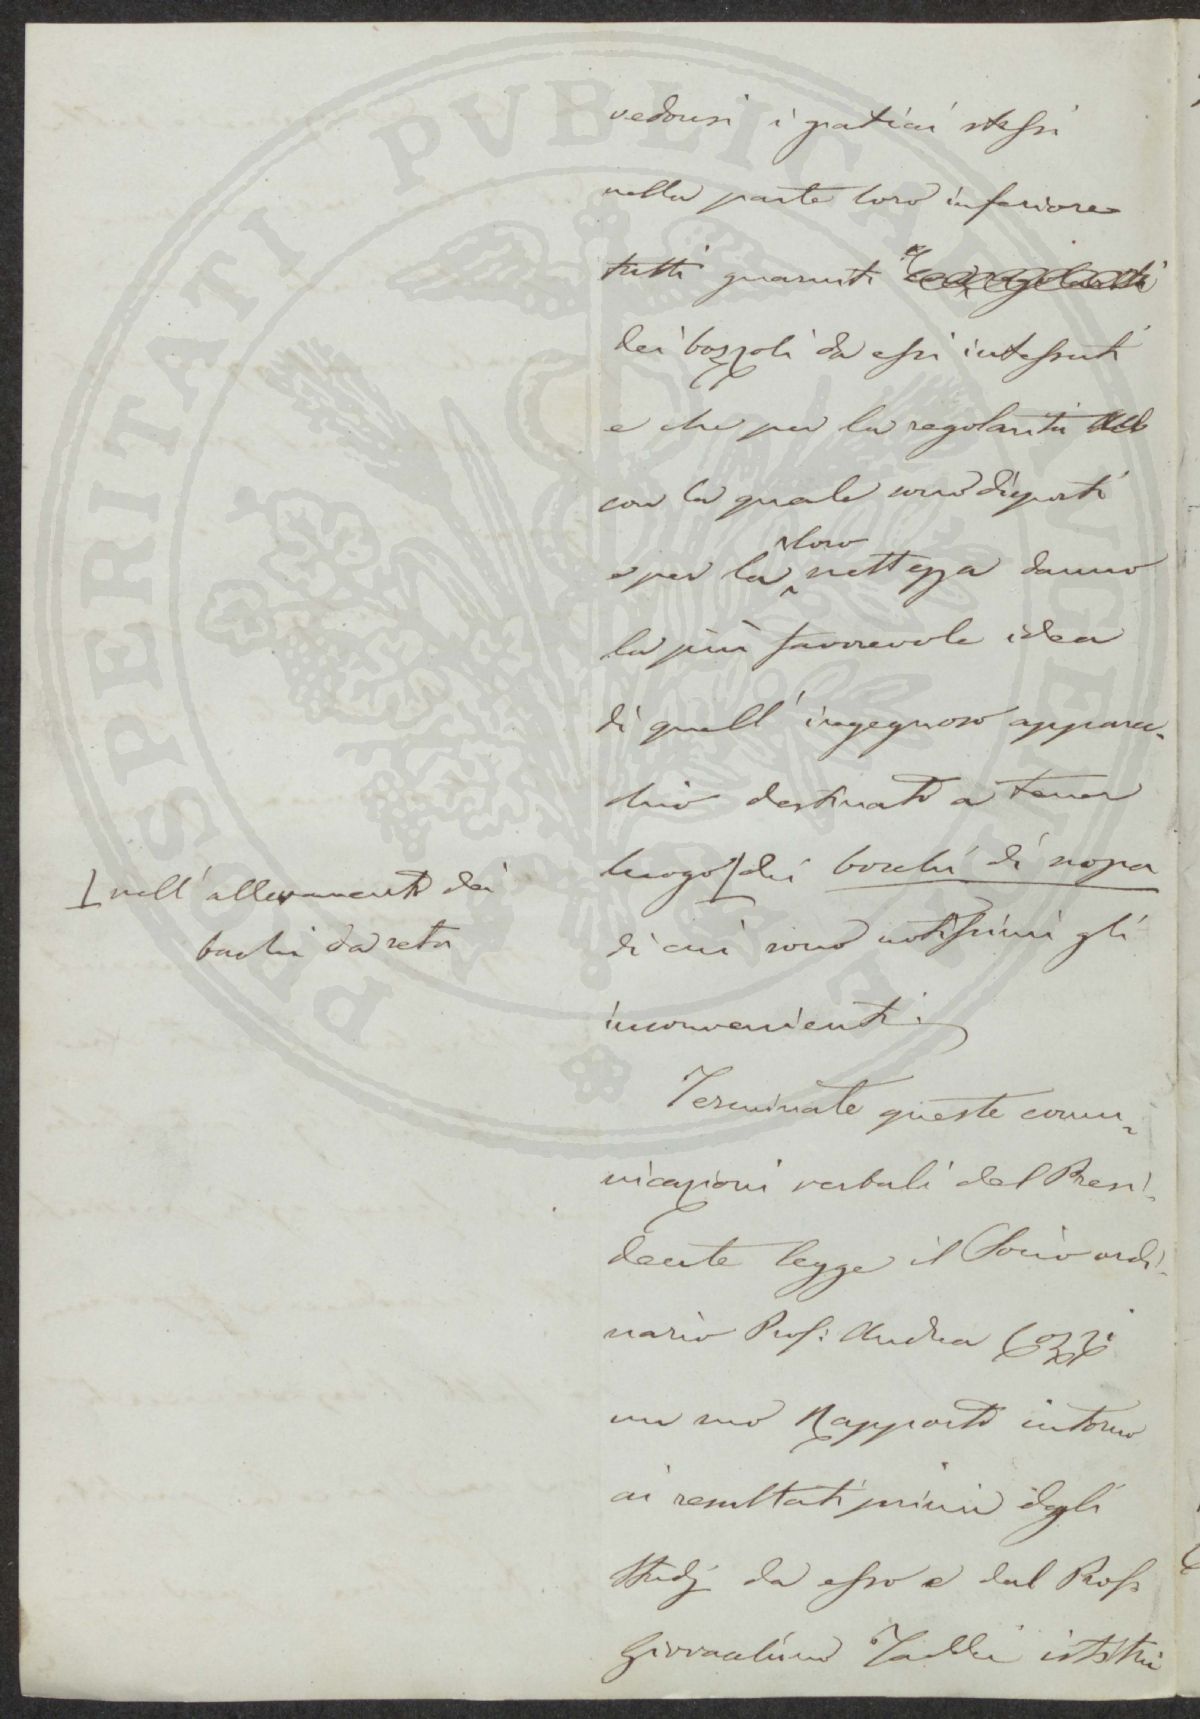 vedonsi i graticci stessi
nella parte loro inferiore
tutti guarniti
dei bozzoli da essi intessuti
e che per la regolarità
con la quale sono disposti
e per la loro nettezza danno
la più favorevole idea
di quell' ingegnoso apparec-
chio destinato a tener
luogo dei boschi di scopa
di cui sono notissimi gli
inconvenienti.
nell' allevamento dei
bachi da seta
Terminate queste comu-
nicazioni verbali del Presi-
dente legge il Socio ordi-
nario Prof: Andrea Cozzi
un suo Rapporto intorno
ai resultati primi degli
Studj da esso e dal Prof
Giovacchino Taddei istitui
PROSPERITATI PVBLICAE AVGENDAE